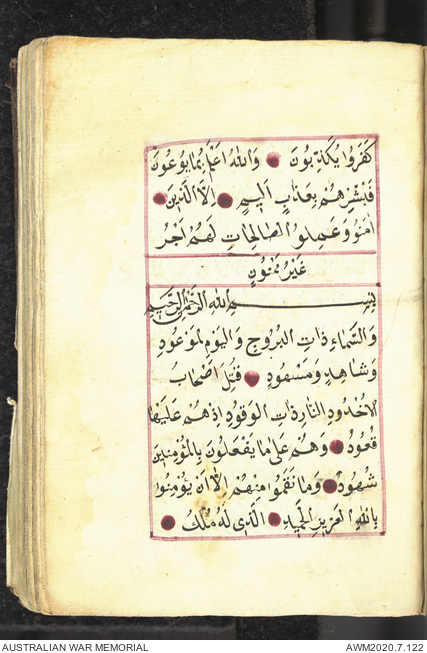 كَفَرُوا يُكَذِّبُونَ وَاللّٰهُ اَعْلَمُ بِمَا يُوعُونَ
فَبَشِّرْهُمْ بِعَذَابٍ اَلِيمٍ اِلَّا الَّذِينَ
اٰمَنُوا وَعَمِلُوا الصَّالِحَاتِ لَهُمْ اَجْرٌ
غَيْرُ مَمْنُونٍ
بِسْمِ اللّٰهِ الرَّحْمٰنِ الرَّحِيمِ
وَالسَّمَاءِ ذَاتِ الْبُرُوجِ وَالْيَوْمِ الْمَوْعُودِ
وَشَاهِدٍ وَمَشْهُودٍ قُتِلَ اَصْحَابُ
الْاُخْدُودِ النَّارِ ذَاتِ الْوَقُودِ اِذْ هُمْ عَلَيْهَا
قُعُودٌ وَهُمْ عَلٰى مَا يَفْعَلُونَ بِالْمُؤْمِنِينَ
شُهُودٌ وَمَا نَقَمُوا مِنْهُمْ اِلَّا اَنْ يُؤْمِنُوا
بِاللّٰهِ الْعَزِيزِ الْحَمِيدِ الَّذِي لَهُ مُلْكُ
AUSTRALIAN WAR MEMORIAL AWM2020.7.122